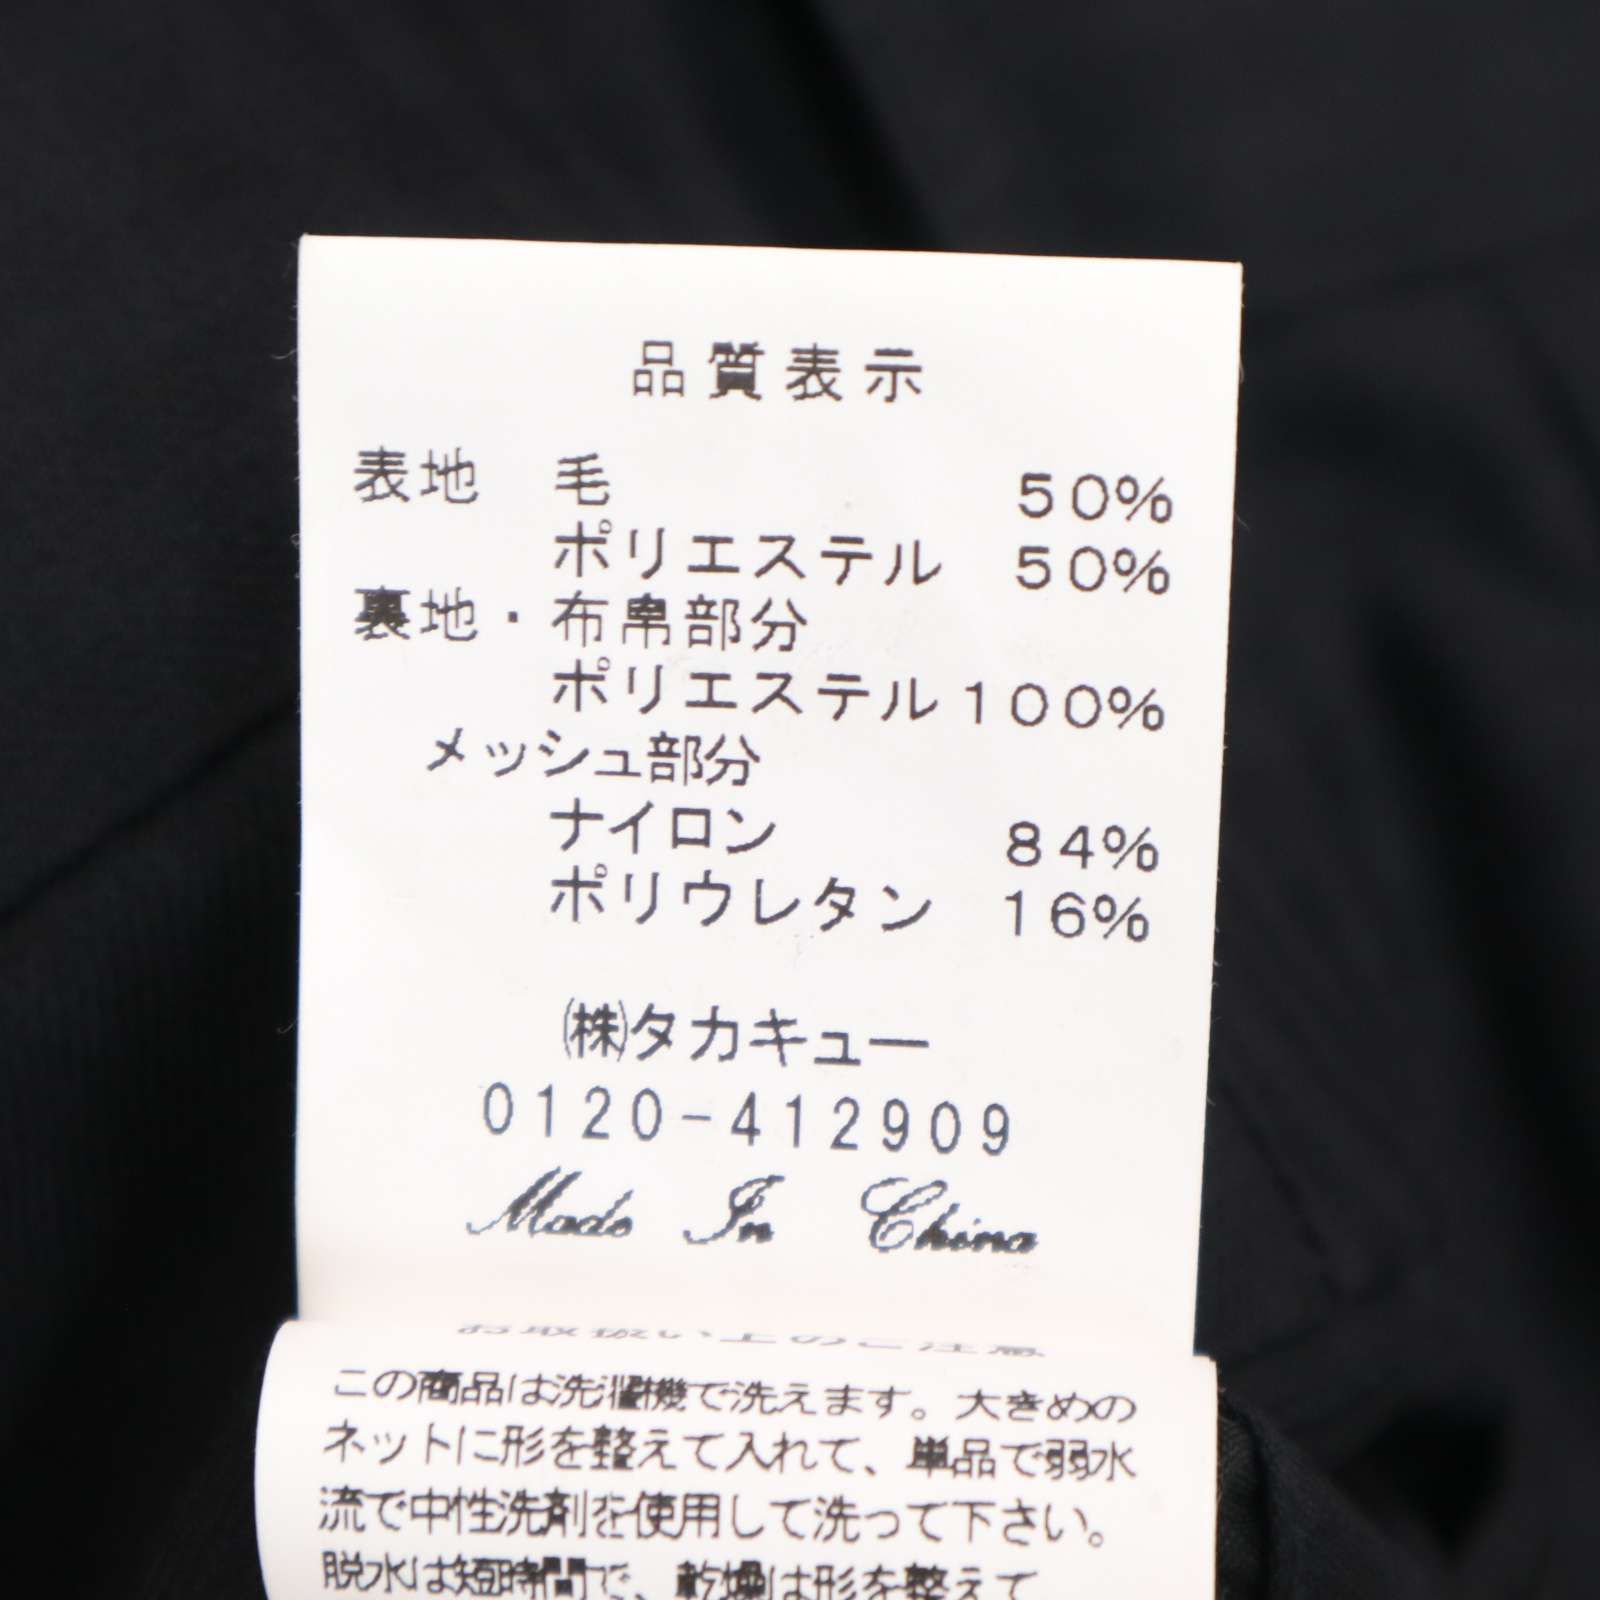 品質表示
表地 毛 50%
ポリエステル 50%
裏地・布帛部分
ポリエステル 100%
メッシュ部分
ナイロン 84%
ポリウレタン 16%
㈱タカキュー
0120-412909
Made In China
お取扱い上のご注意
この商品は洗濯機で洗えます。大きめの
ネットに形を整えて入れて、単品で弱水
流で中性洗剤を使用して洗って下さい。
脱水は短時間で、乾燥は形を整えて